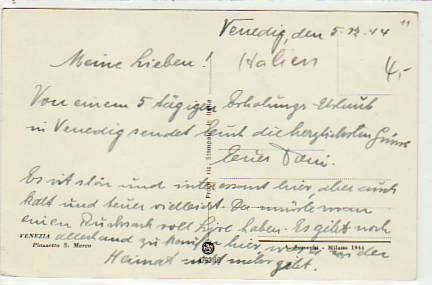 Venedig, den 5.12.44
Meine Lieben! Italien
4,-
Von einem 5 tägigen Erholungs-Urlaub
in Venedig sendet Euch die herzlichsten Grüsse
Euer Toni.
Es ist schön und interessant hier aber auch
kalt und teuer vielleicht. Da müsste man
einen Rucksack voll Lire haben. Es gibt noch
allerhand zu kaufen hier was es in der
Heimat nicht mehr gibt.
VENEZIA
Piazzetta S. Marco
Milano 1944